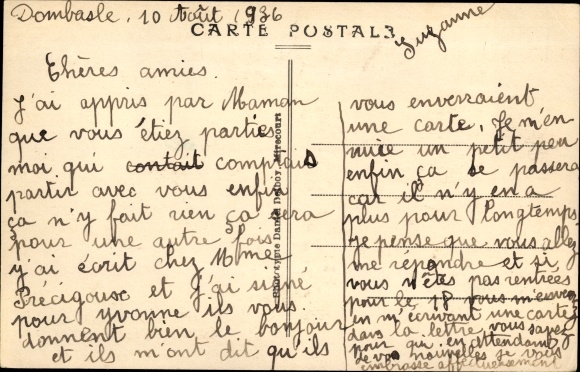 Dombasle, 10 Août 1936
CARTE POSTALE
Suzanne
Chères amies.
J'ai appris par Maman
que vous étiez parties
moi qui contait comptais
partir avec vous enfin
ça n'y fait rien ça sera
pour une autre fois
j'ai écrit chez Mme
Précigouse et j'ai signé
pour yvonne ils vous
donnent bien le bonjour
et ils m'ont dit qu'ils
vous enverraient
une carte. Je m'en
nuie un petit peu
enfin ça se passera
car il n'y en a
plus pour longtemps
je pense que vous allez
me répondre et si
vous n'êtes pas rentrées
pour le 18 vous
en m'écrivant une carte
dans la lettre vous savez
pour qui en attendant
de vos nouvelles je vous
embrasse affectueusement
Daniel Delboy, Mirecourt